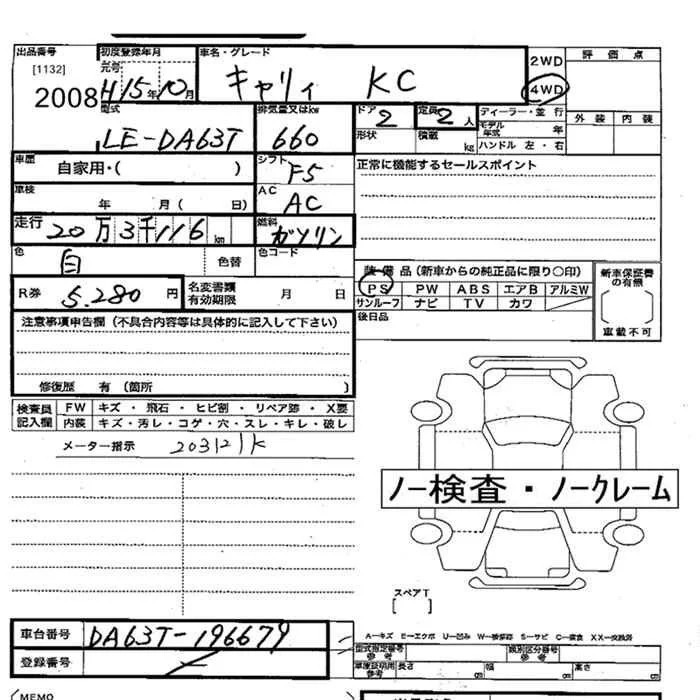 出品番号 初度登録年月 車名・グレード 2WD 評価点
[1132] 元号 キャリィ KC 4WD
2008 H15年10月 外装 内装
型式 排気量又はkw ドア 定員 ディーラー・並行
LE-DA63T 660 2 2人 モデル年式 年
形状 積載 kg ハンドル 左・右
車歴 自家用・( ) シフト F5 正常に機能するセールスポイント
車検 年 月( 日) AC AC
走行 20万3千116km 燃料 ガソリン
色 自 色替 色コード
装備品(新車からの純正品に限り○印) 新車保証書の有無
R券 5.280円 名変書類有効期限 月 日 PS PW ABS エアB アルミW
サンルーフ ナビ TV カワ
車載不可
注意事項申告欄(不具合内容等は具体的に記入して下さい) 後日品
修復歴 有(箇所 )
検査員記入欄 FW キズ・飛石・ヒビ割・リペア跡・X要
内装 キズ・汚レ・コゲ・穴・スレ・キレ・破レ
メーター指示 203121K
ノー検査・ノークレーム
スペアT
[ ]
車台番号 DA63T-196679
A−キズ E−エクボ U−凹み W−補修跡 S−サビ C−腐食 XX−交換済
型式指定番号 参考 類別区分番号 参考
登録番号 車庫証明用参考 長さ 幅 高さ
MEMO